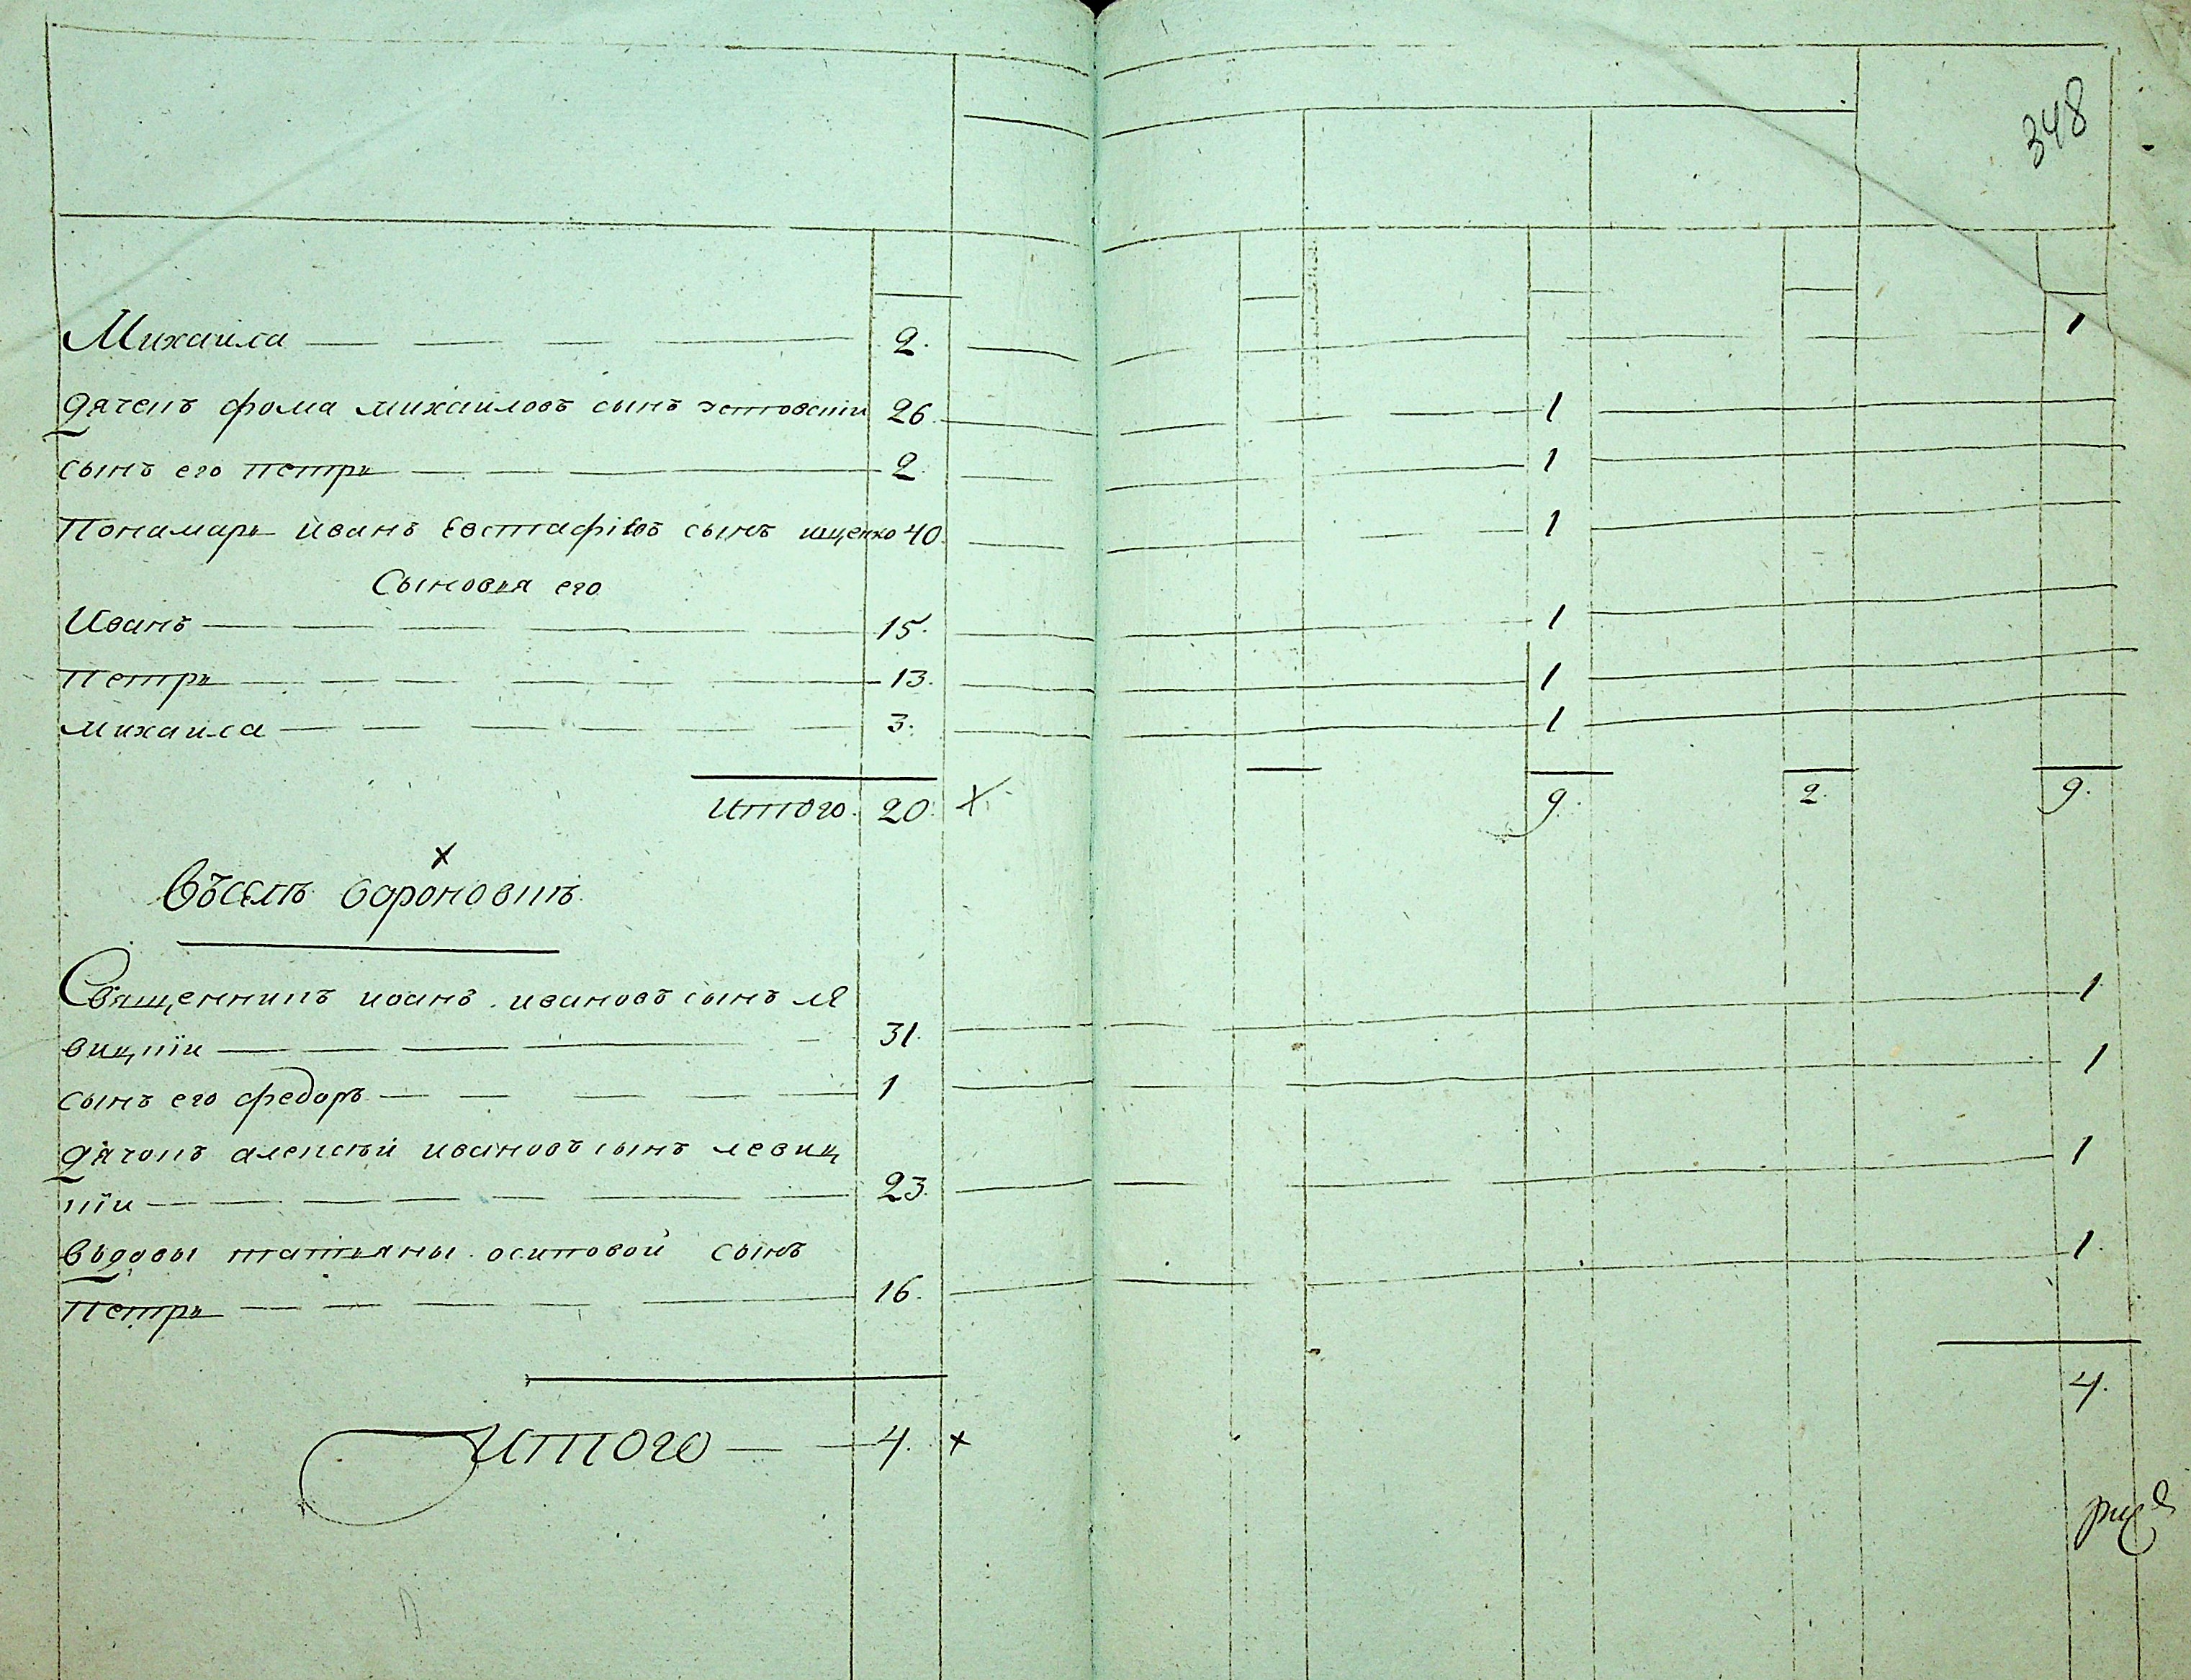 348
Михаила 2. 1
дячекъ фома михаиловъ сынъ 26. 1
сынъ его петръ 2 1
Понамарь иванъ Евстафіевъ сынъ ищенко 40. 1
Сыновья его
Иванъ 15. 1
Петръ 13. 1
михаила 3. 1
итого. 20. х 9. 2. 9.
х
Въселѣ вороновкѣ
Священникъ иоанъ ивановъ сынъ ле 1
вицкїи 31.
сынъ его федоръ 1 1
дячокъ алексѣй ивановъ сынъ левиц 1
кїи 23.
Въдовы татьяны осиповой сынъ 1.
Петръ 16.
4.
Итого 4. х